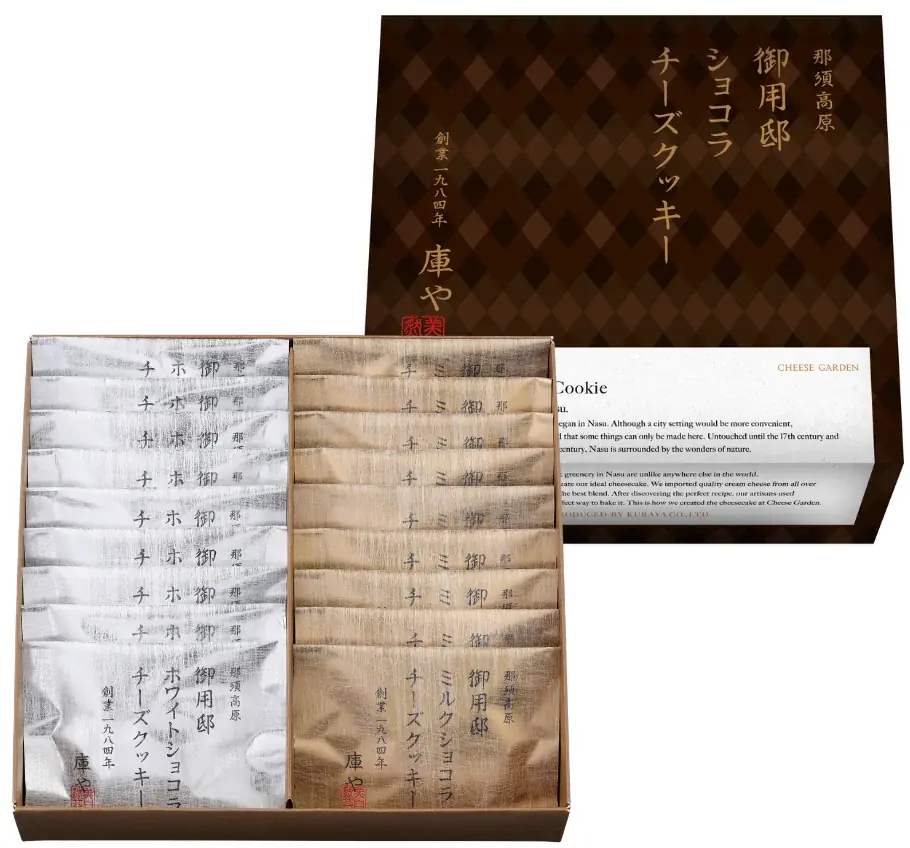 那須高原
御用邸
ショコラ
チーズクッキー
創業一九八四年
庫や
CHEESE GARDEN
Cookie
su.
egan in Nasu. Although a city setting would be more convenient,
d that some things can only be made here. Untouched until the 17th century and
century. Nasu is surrounded by the wonders of nature.
greenery in Nasu are unlike anywhere else in the world.
ate our ideal cheesecake. We imported quality cream cheese from all over
the best blend. After discovering the perfect recipe, our artisans used
fect way to bake it. This is how we created the cheesecake at Cheese Garden.
RODUCED BY KURAYA CO.,LTD.
那 御 ホ チ
那 御 ホ チ
那 御 ホ チ
那 御 ホ チ
那 御 ホ チ
那 御 ホ チ
那 御 ホ チ
那 御 ホ チ
那須高原
御用邸
ホワイトショコラ
チーズクッキー
創業一九八四年
庫や
那 御 ミ チ
那 御 ミ チ
那 御 ミ チ
那 御 ミ チ
那 御 ミ チ
那 御 ミ チ
那 御 ミ チ
那 御 ミ チ
那須高原
御用邸
ミルクショコラ
チーズクッキー
創業一九八四年
庫や